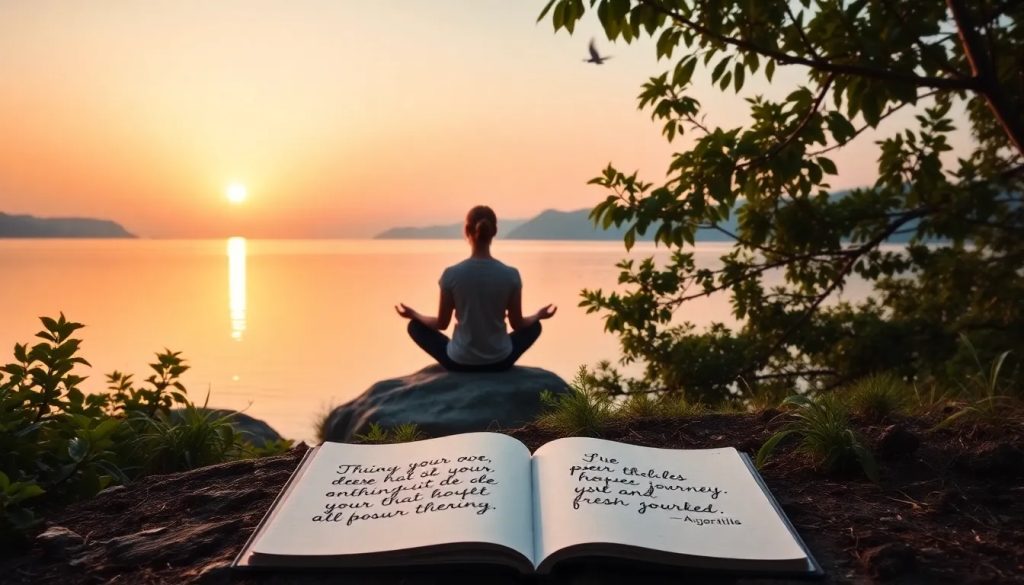 Thung your ove,
deese hat at your,
onthing uit de de
your that hoyft
all posur thering.
Fue
peer thelcles
hopee journey.
yst and
fresh yourked.
—Agorthls